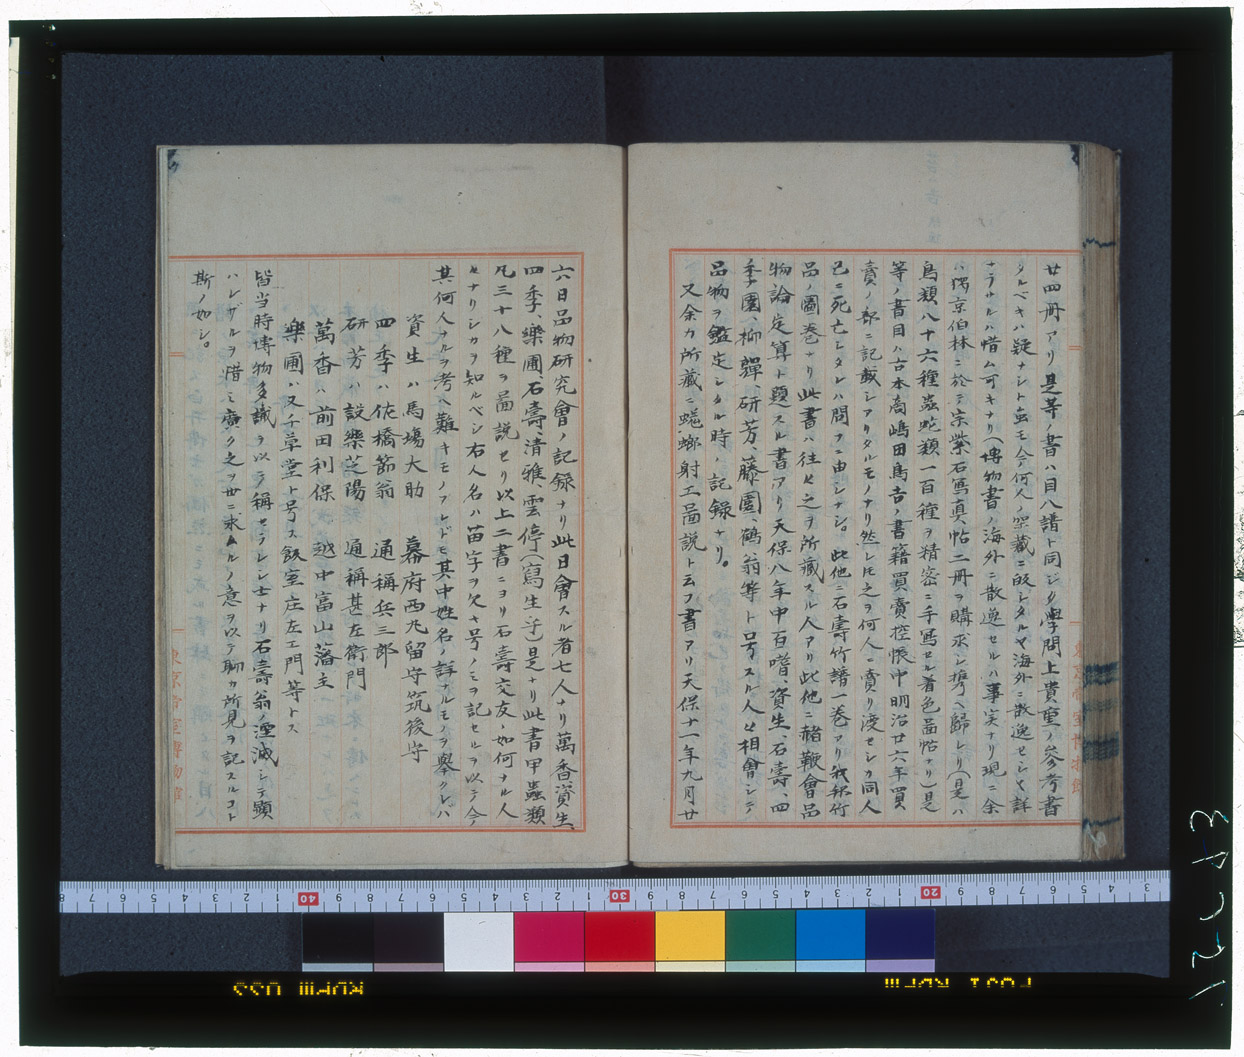 廿四冊アリ是等ノ書ハ目八譜ト同ジク學問上貴重ノ參考書
タルベキハ疑ナシト虽モ今何人ノ架藏ニ皈シタルヤ海外ニ散逸セシヤ詳
ナラサルハ惜ム可キナリ(博物書ノ海外ニ散逸セルハ事実ナリ現ニ余
ハ獨京伯林ニ於テ宗紫石寫真帖二冊ヲ購求シ携ヘ歸レリ)(是ハ
鳥類八十六種蟲蛇類一百種ヲ精密ニ手寫セル着色品帖ナリ)是
等ノ書目ハ古本商嶋田鳥吉ノ書籍買賣控帳中明治廿六年買
賣ノ部ニ記載シアリタルモノナリ然レ𪜈之ヲ何人ニ賣リ渡セシカ同人
已ニ死亡シタレハ問フニ由レナシ。此他ニ石壽竹譜一巻アリ我邦竹
品ノ圖巻ナリ此書ハ往々之ヲ所藏スル人アリ此他ニ赭鞭會品
物論定纂ト題スル書アリ天保八年中百嗜、資生、石壽、四
季園、柳彈、研芳、藤園、鶴翁等ト号スル人々相會シテ
品物ヲ鑑定シタル時ノ記録ナリ。
又余カ所藏ニ蜣蜋射工啚説ト云フ書アリ天保十一年九月廿
六日品物研究會ノ記録ナリ此日會スル者七人ナリ萬香、資生、
四季、樂圃、石壽、清雅、雲停(寫生ス)是ナリ此書甲蟲類
凡三十八種ヲ啚説セリ以上二書ニヨリ石壽交友ノ如何ナル人
々ナリシカヲ知ルベシ右人名ハ苗字ヲ欠キ号ノミヲ記セルヲ以テ今
其何人ナルヲ考ヘ難キモノアレドモ其中姓名ノ詳ナルモノヲ擧クレハ
資生ハ馬場大助 幕府西丸留守筑後守
四季ハ佐橋節翁 通稱兵三郎
研芳ハ設樂芝陽 通稱甚左衛門
萬香ハ前田利保 越中富山藩主
樂圃ハ又千草堂ト号ス飯室庄左エ門等トス
皆当時博物多識ヲ以テ稱セラレシ士ナリ石壽翁ノ湮滅シテ顯
ハレザルヲ惜ミ廣ク之ヲ世ニ求ムルノ意ヲ以テ聊カ所見ヲ記スルコト
斯ノ如シ。
東京帝室博物館
東京帝室博物館